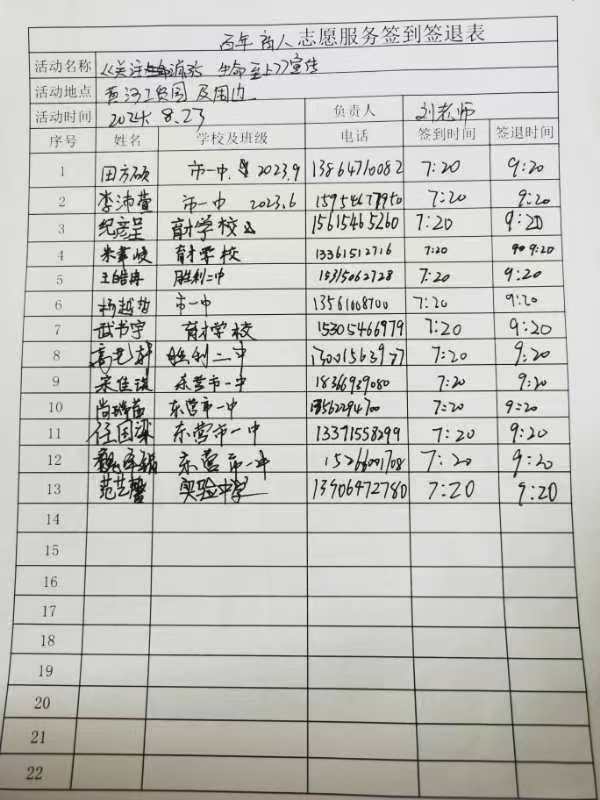 百年育人 志愿服务签到签退表
活动名称 《关注 生命至上》宣传
活动地点 黄河工会园及周边
活动时间 2024. 8.23 负责人 刘老师
序号 姓名 学校及班级 电话 签到时间 签退时间
1 田方硕 市一中. 2023.9 13864710082 7:20 9:20
2 李沛萱 市一中 2023.6 7:20 9:20
3 纪彦呈 育才学校 15615465260 7:20 9:20
4 朱 育才学校 13361512716 7:20 9:20
5 王皓冉 胜利二中 15315062728 7:20 9:20
6 杨越哲 市一中 13561008700 7:20 9:20
7 武书宇 育才学校 15305466979 7:20 9:20
8 高艺轩 胜利二中 7:20 9:20
9 宋佳琪 东营市一中 18366939080 7:20 9:20
10 尚 东营市一中 7:20 9:20
11 任国梁 东营市一中 13371558299 7:20 9:20
12 魏 东营市一中 7:20 9:20
13 范艺馨 实验中学 13906472780 7:20 9:20
14
15
16
17
18
19
20
21
22